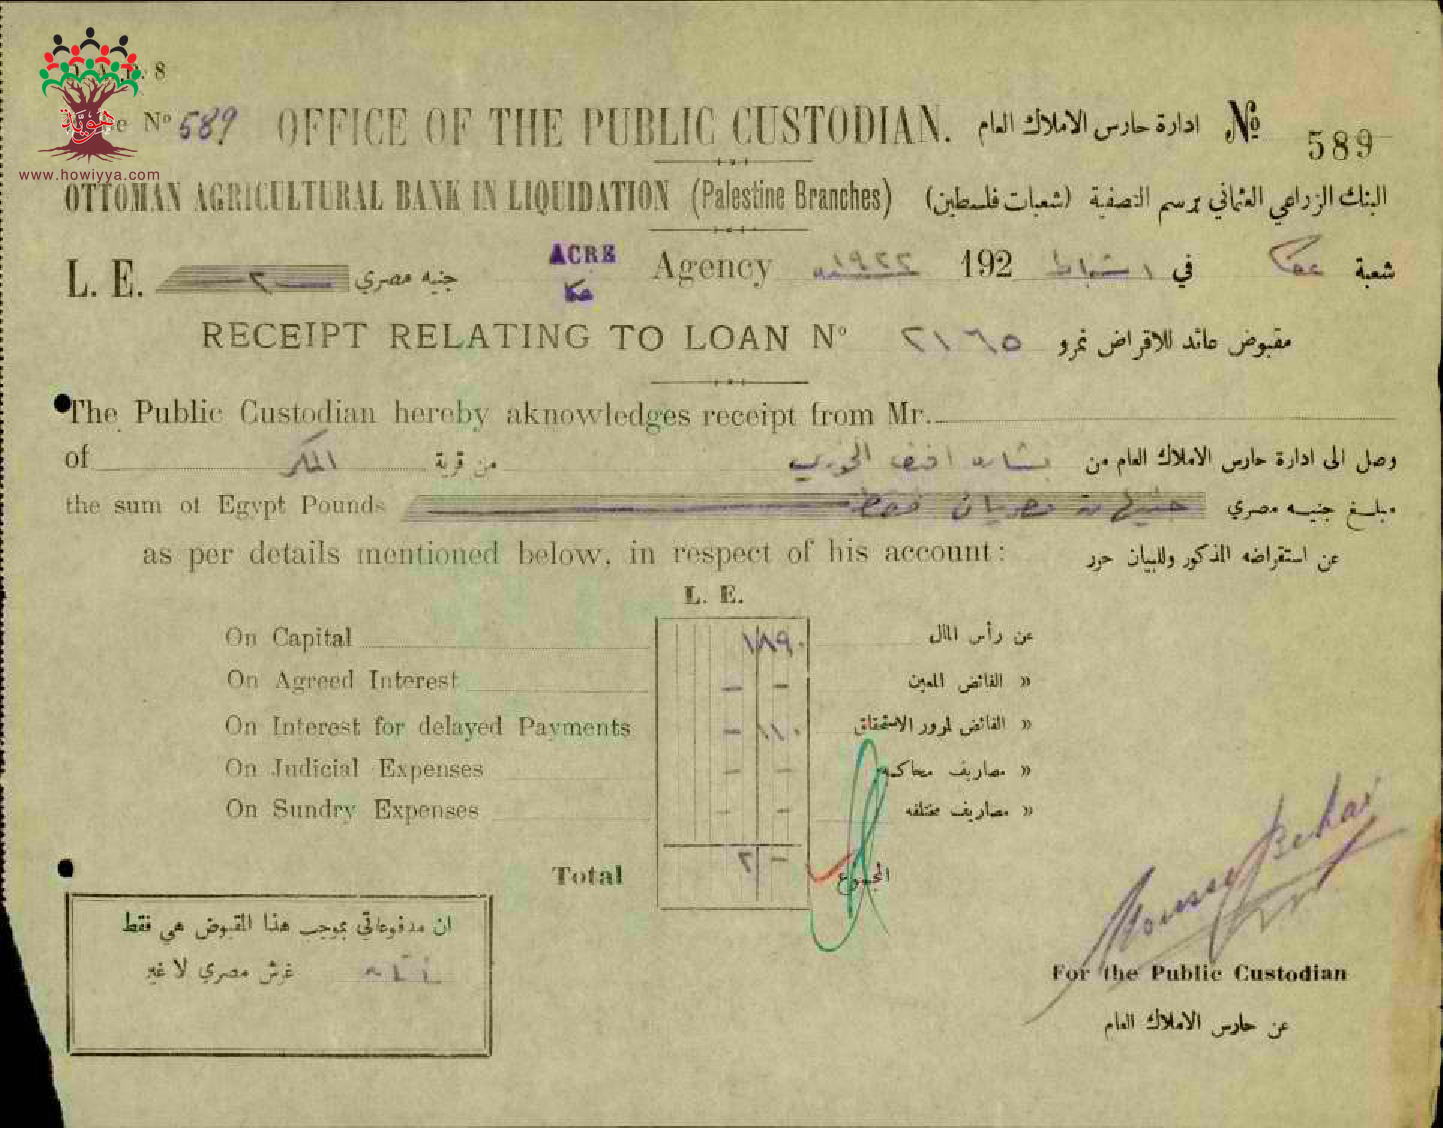 8
Nº 589 OFFICE OF THE PUBLIC CUSTODIAN. ادارة حارس الاملاك العام Nº 589
هوية
www.howiyya.com
OTTOMAN AGRICULTURAL BANK IN LIQUIDATION (Palestine Branches) البنك الزراعي العثماني برسم التصفية (شعبات فلسطين)
L. E. ٢ جنيه مصري ACRE عكا Agency ١٩٢٢ 192 شباط في عكا شعبة
RECEIPT RELATING TO LOAN Nº ٢١٦٥ مقبوض عائد للاقراض نمرو
The Public Custodian hereby aknowledges receipt from Mr.
of المكر من قرية بشاره افندي الخوري وصل الى ادارة حارس الاملاك العام من
the sum of Egypt Pounds جنيهان مصريان فقط مبلغ جنيه مصري
as per details mentioned below, in respect of his account: عن استقراضه المذكور وللبيان حرر
L. E.
On Capital ١٨٩٠ عن رأس المال
On Agreed Interest — — » الفائض المعين
On Interest for delayed Payments — ١١٠ » الفائض لمرور الاستحقاق
On Judicial Expenses — — » مصاريف محاكمه
On Sundry Expenses — — » مصاريف مختلفه
Total ٢ — المجموع
ان مدفوعاتي بموجب هذا المقبوض هي فقط
غرش مصري لا غير
For the Public Custodian
عن حارس الاملاك العام